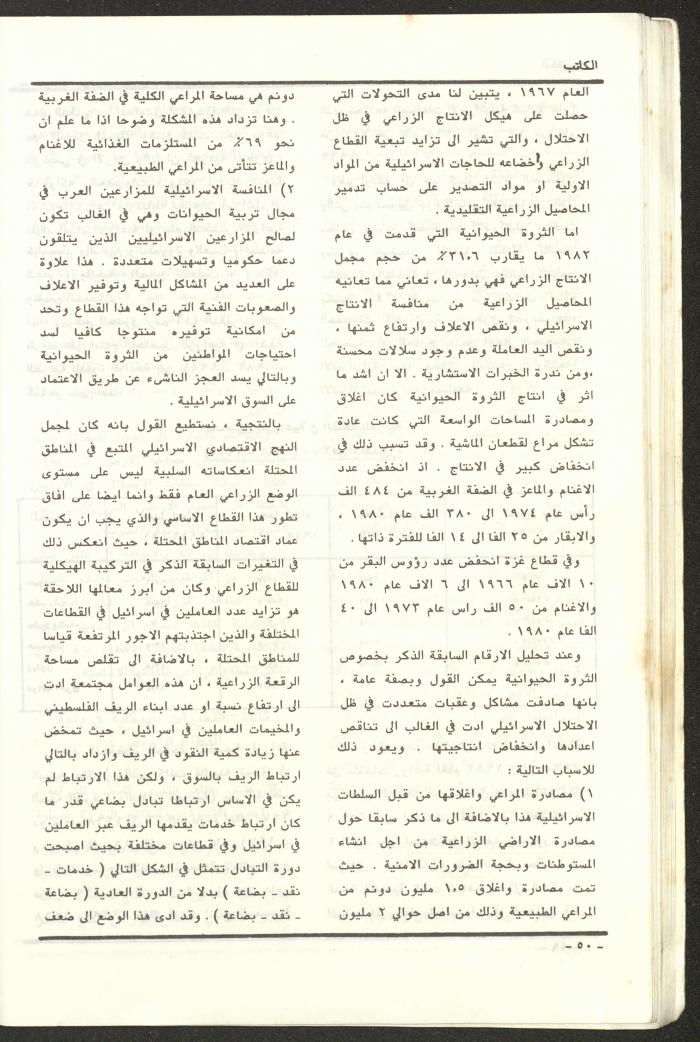 الكاتب
العام ١٩٦٧ ، يتبين لنا مدى التحولات التي
حصلت على هيكل الانتاج الزراعي في ظل
الاحتلال ، والتي تشير الى تزايد تبعية القطاع
الزراعي واخضاعه للحاجات الاسرائيلية من المواد
الاولية او مواد التصدير على حساب تدمير
المحاصيل الزراعية التقليدية .
اما الثروة الحيوانية التي قدمت في عام
١٩٨٢ ما يقارب ٣١،٦٪ من حجم مجمل
الانتاج الزراعي فهي بدورها ، تعاني مما تعانيه
المحاصيل الزراعية من منافسة الانتاج
الاسرائيلي ، ونقص الاعلاف وارتفاع ثمنها ،
ونقص اليد العاملة وعدم وجود سلالات محسنة
،ومن ندرة الخبرات الاستشارية . الا ان اشد ما
اثر في انتاج الثروة الحيوانية كان اغلاق
ومصادرة المساحات الواسعة التي كانت عادة
تشكل مراع لقطعان الماشية . وقد تسبب ذلك في
انخفاض كبير في الانتاج . اذ انخفض عدد
الاغنام والماعز في الضفة الغربية من ٤٨٤ الف
رأس عام ١٩٧٤ الى ٣٨٠ الف عام ١٩٨٠ ،
والابقار من ٢٥ الفا الى ١٤ الفا للفترة ذاتها .
وفي قطاع غزة انخفض عدد رؤوس البقر من
١٠ الاف عام ١٩٦٦ الى ٦ الاف عام ١٩٨٠
والاغنام من ٥٠ الف راس عام ١٩٧٣ الى ٤٠
الفا عام ١٩٨٠ .
وعند تحليل الارقام السابقة الذكر بخصوص
الثروة الحيوانية يمكن القول وبصفة عامة ،
بانها صادفت مشاكل وعقبات متعددت في ظل
الاحتلال الاسرائيلي ادت في الغالب الى تناقص
اعدادها وانخفاض انتاجيتها . ويعود ذلك
للاسباب التالية :
١) مصادرة المراعي واغلاقها من قبل السلطات
الاسرائيلية هذا بالاضافة الى ما ذكر سابقا حول
مصادرة الاراضي الزراعية من اجل انشاء
المستوطنات وبحجة الضرورات الامنية . حيث
تمت مصادرة واغلاق ١،٥ مليون دونم من
المراعي الطبيعية وذلك من اصل حوالي ٢ مليون
دونم هي مساحة المراعي الكلية في الضفة الغربية
. وهنا تزداد هذه المشكلة وضوحا اذا ما علم ان
نحو ٦٩٪ من المستلزمات الغذائية للاغنام
والماعز تتأتى من المراعي الطبيعية.
٢) المنافسة الاسرائيلية للمزارعين العرب في
مجال تربية الحيوانات وهي في الغالب تكون
لصالح المزارعين الاسرائيليين الذين يتلقون
دعما حكوميا وتسهيلات متعددة . هذا علاوة
على العديد من المشاكل المالية وتوفير الاعلاف
والصعوبات الفنية التي تواجه هذا القطاع وتحد
من امكانية توفيره منتوجا كافيا لسد
احتياجات المواطنين من الثروة الحيوانية
وبالتالي يسد العجز الناشىء عن طريق الاعتماد
على السوق الاسرائيلية .
بالنتجية ، نستطيع القول بانه كان لمجمل
النهج الاقتصادي الاسرائيلي المتبع في المناطق
المحتلة انعكاساته السلبية ليس على مستوى
الوضع الزراعي العام فقط وانما ايضا على افاق
تطور هذا القطاع الاساسي والذي يجب ان يكون
عماد اقتصاد المناطق المحتلة ، حيث انعكس ذلك
في التغيرات السابقة الذكر في التركيبة الهيكلية
للقطاع الزراعي وكان من ابرز معالمها اللاحقة
هو تزايد عدد العاملين في اسرائيل في القطاعات
المختلفة والذين اجتذبتهم الاجور المرتفعة قياسا
للمناطق المحتلة ، بالاضافة الى تقلص مساحة
الرقعة الزراعية ، ان هذه العوامل مجتمعة ادت
الى ارتفاع نسبة او عدد ابناء الريف الفلسطيني
والمخيمات العاملين في اسرائيل ، حيث تمخض
عنها زيادة كمية النقود في الريف وازداد بالتالي
ارتباط الريف بالسوق ، ولكن هذا الارتباط لم
يكن في الاساس ارتباطا تبادل بضاعي قدر ما
كان ارتباط خدمات يقدمها الريف عبر العاملين
في اسرائيل وفي قطاعات مختلفة بحيث اصبحت
دورة التبادل تتمثل في الشكل التالي ( خدمات ـ
نقد ـ بضاعة ) بدلا من الدورة العادية ( بضاعة
ـ نقد ـ بضاعة ) . وقد ادى هذا الوضع الى ضعف
- ٥٠ -